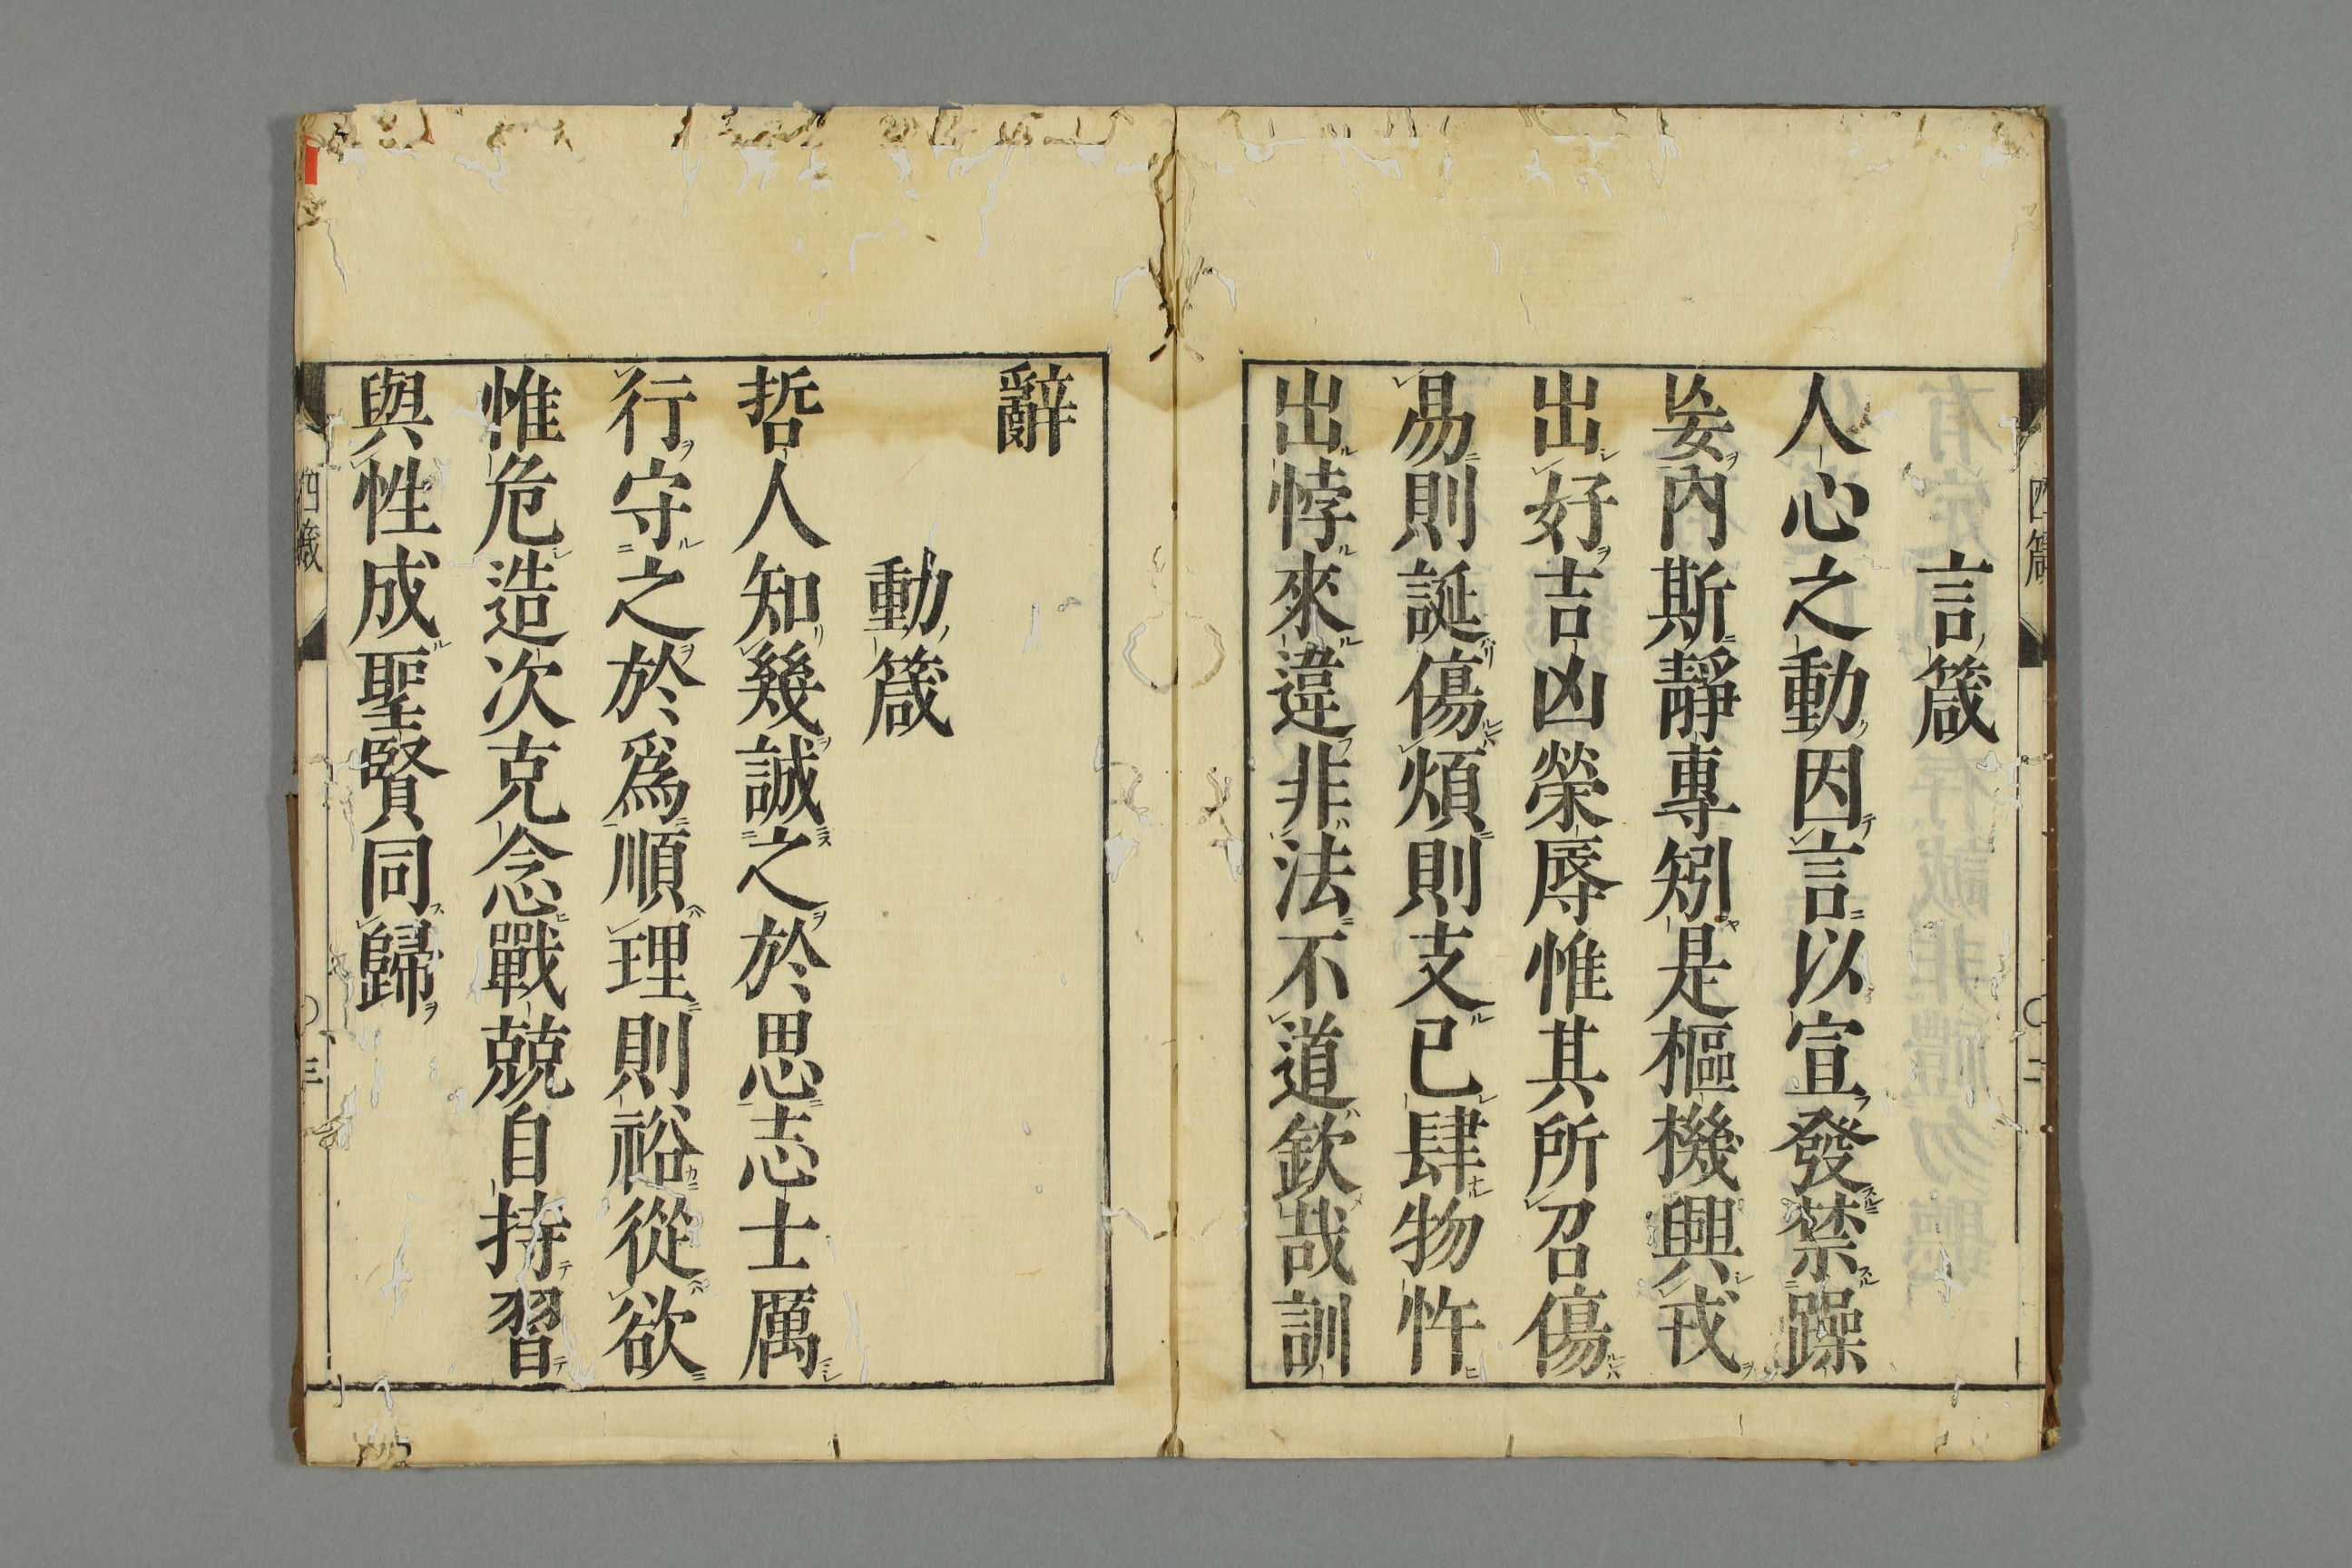 四箴 二
言箴
人心之動因言以宣發禁躁
妄內斯靜專矧是樞機興戎
出好吉凶榮辱惟其所召傷
易則誕傷煩則支已肆物忤
出悖來違非法不道欽哉訓
辭
動箴
哲人知幾誠之於思志士厲
行守之於爲順理則裕從欲
惟危造次克念戰兢自持習
與性成聖賢同歸
四箴 三